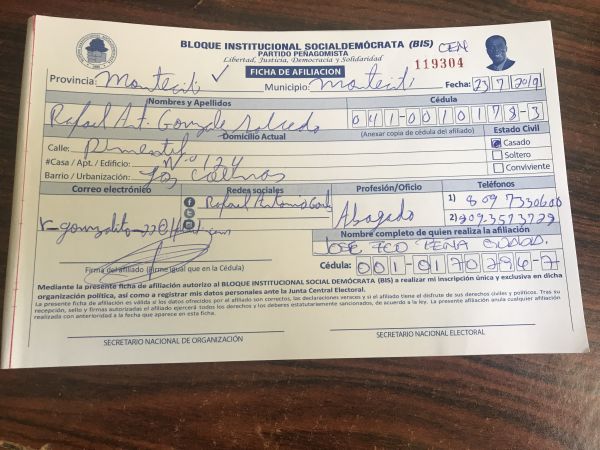 BLOQUE INSTITUCIONAL SOCIALDEMÓCRATA (BIS) CEN
PARTIDO PEÑAGOMISTA
Libertad, Justicia, Democracia y Solidaridad
FICHA DE AFILIACION
119304
Provincia: Montecti Municipio: Montecti Fecha: 23/7/2019
Nombres y Apellidos Cédula
Rafael Ant. Gonzale Salcedo 041-0010178-3
Domicilio Actual (Anexar copia de cédula del afiliado) Estado Civil
Calle: Pimentel Casado
#Casa / Apt. / Edificio: Nº 124 Soltero
Barrio / Urbanización: Las Colinas Conviviente
Correo electrónico Redes sociales Profesión/Oficio Teléfonos
Rafael Antonio Abogado 1) 809 7330600
2) 809 3573729
Nombre completo de quien realiza la afiliación
JOSE FCO PEÑA
Firma del afiliado (Firme igual que en la Cédula) Cédula: 001-0170296-7
Mediante la presente ficha de afiliación autorizo al BLOQUE INSTITUCIONAL SOCIALDEMÓCRATA (BIS) a realizar mi inscripción única y exclusiva en dicha
organización política, así como a registrar mis datos personales ante la Junta Central Electoral.
La presente ficha de afiliación es válida si los datos ofrecidos por el afiliado son correctos, las declaraciones versces y si el afiliado tiene el disfrute de sus derechos civiles y políticos. Tras su
recepción, sello y firmas autorizadas el afiliado ejercerá todos los derechos y los deberes estatutariamente sancionados, de acuerdo a la ley. La presente afiliación anula cualquier afiliación
realizada con anterioridad a la fecha que aparece en esta ficha.
SECRETARIO NACIONAL DE ORGANIZACIÓN SECRETARIO NACIONAL ELECTORAL